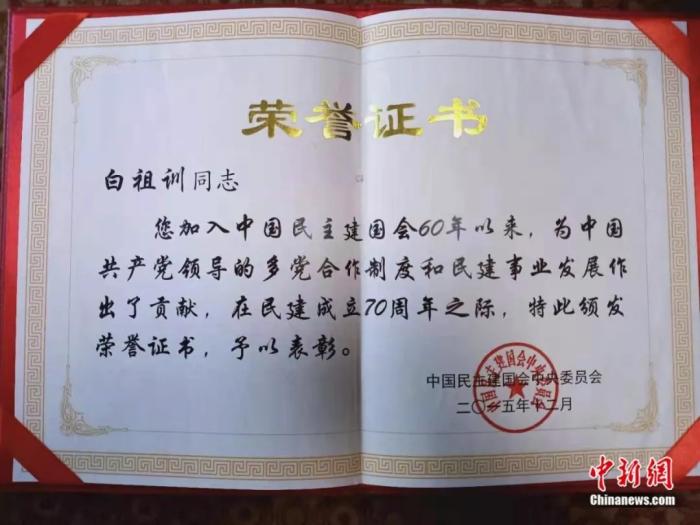 荣誉证书
白祖训同志
您加入中国民主建国会60年以来，为中国
共产党领导的多党合作制度和民建事业发展作
出了贡献，在民建成立70周年之际，特此颁发
荣誉证书，予以表彰。
中国民主建国会中央委员会
二〇一五年十二月
中国民主建国会中央委员会
中新網
Chinanews.com